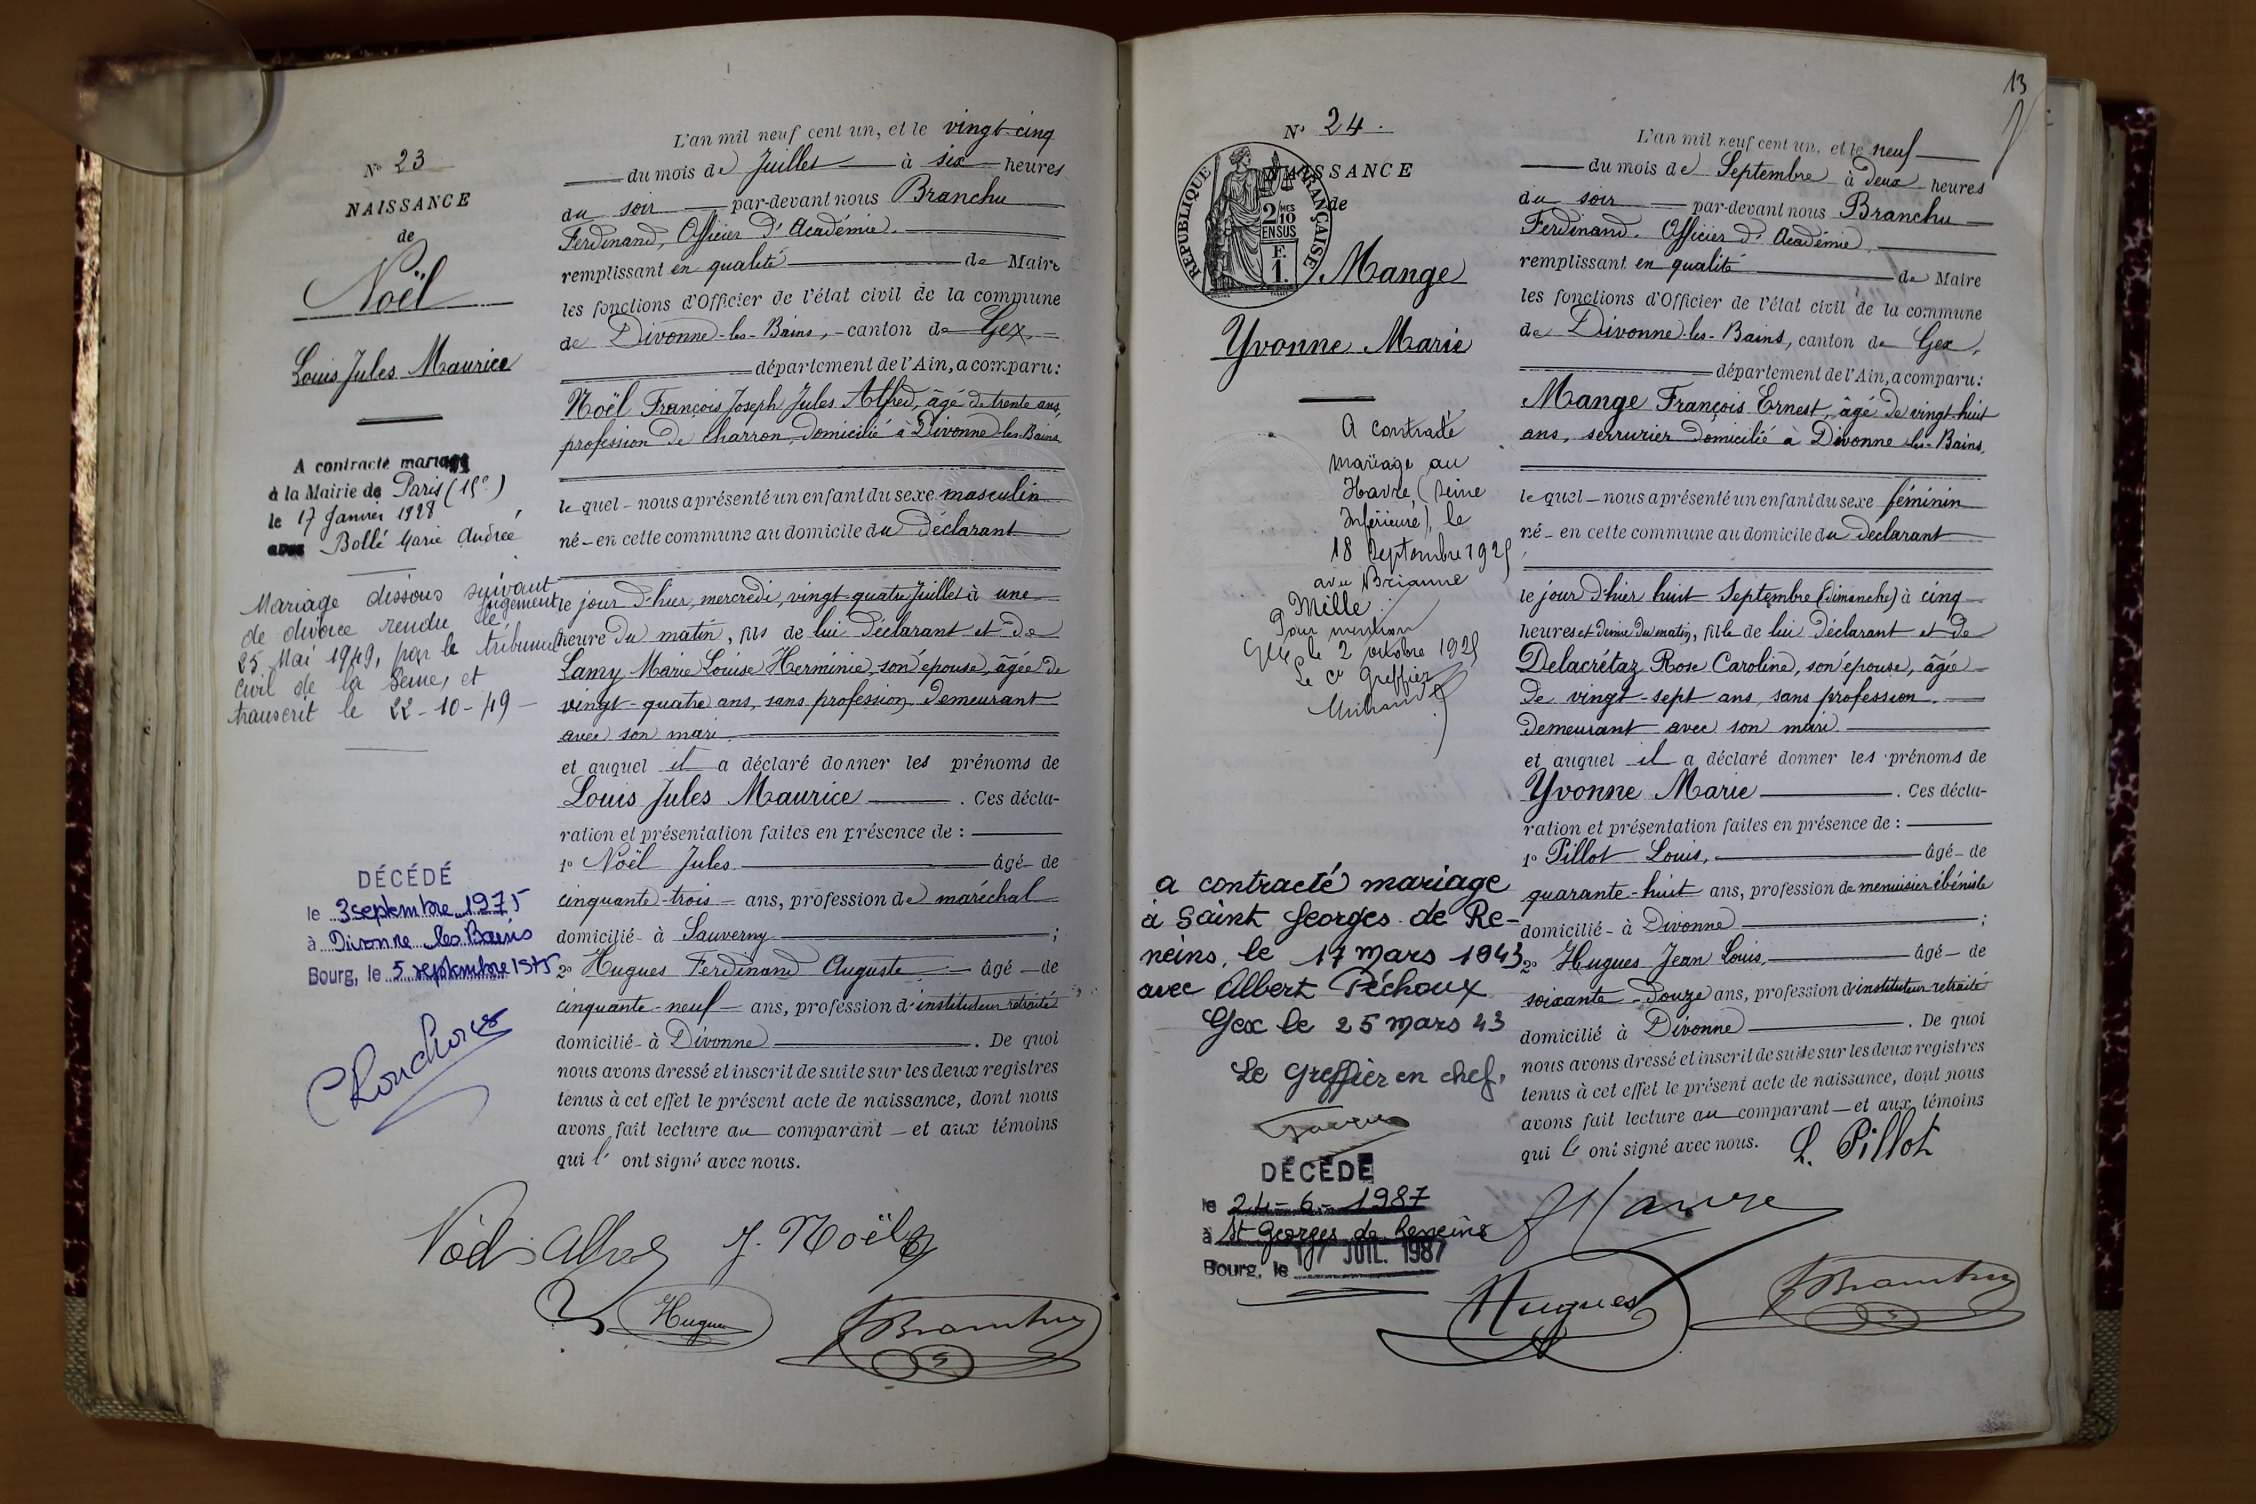 N° 23
NAISSANCE
de
Noël
Louis Jules Maurice
A contracté mariage
à la Mairie de Paris (15e)
le 17 Janvier 1928
avec Bollé Marie Andrée
Mariage dissous suivant
jugement
de divorce rendu le
25 Mai 1949, par le tribunal
civil de la Seine, et
transcrit le 22-10-49 -
DÉCÉDÉ
le 3 septembre 1975
à Divonne les Bains
Bourg, le 5 septembre 1975
L'an mil neuf cent un, et le vingt-cinq
du mois de Juillet à six heures
du soir par-devant nous Branchu
Ferdinand, Officier d'Académie.
remplissant en qualité de Maire
les fonctions d'Officier de l'état civil de la commune
de Divonne-les-Bains, - canton de Gex,
département de l'Ain, a comparu:
Noël François Joseph Jules Alfred, âgé de trente ans,
profession de charron, domicilié à Divonne-les-Bains
le quel - nous a présenté un enfant du sexe masculin
né - en cette commune au domicile du déclarant
le jour d'hier, mercredi, vingt-quatre Juillet à une
heure du matin, fils de lui déclarant et de
Lamy Marie Louise Herminie, son épouse, âgée de
vingt-quatre ans, sans profession, demeurant
avec son mari.
et auquel il a déclaré donner les prénoms de
Louis Jules Maurice . Ces décla-
ration et présentation faites en présence de :
1° Noël Jules. âgé - de
cinquante-trois ans, profession de maréchal
domicilié - à Sauverny ;
2° Hugues Ferdinand Auguste âgé - de
cinquante-neuf ans, profession d'instituteur retraité
domicilié - à Divonne . De quoi
nous avons dressé et inscrit de suite sur les deux registres
tenus à cet effet le présent acte de naissance, dont nous
avons fait lecture au comparant - et aux témoins
qui l' ont signé avec nous.
Noël Alfred J. Noël
Hugues
Branchu
13
N° 24.
NAISSANCE
de
RÉPUBLIQUE FRANÇAISE
2/10 MES
EN SUS
F.
1.
Mange
Yvonne Marie
A contracté
mariage au
Havre, (Seine
Inférieure), le
18 Septembre 1925
avec Brianne
Mille.
Pour mention
Gex le 2 octobre 1925
Le Cis Greffier
a contracté mariage
à Saint Georges de Re-
neins, le 17 mars 1943
avec Albert Péchoux
Gex le 25 mars 43
Le Greffier en chef,
DÉCÉDÉ
le 24-6-1987
à St Georges de Reneins
Bourg, le 17 JUIL. 1987
L'an mil neuf cent un, et le neuf
du mois de Septembre à deux heures
du soir par-devant nous Branchu
Ferdinand. Officier d'Académie.
remplissant en qualité de Maire
les fonctions d'Officier de l'état civil de la commune
de Divonne-les-Bains, canton de Gex,
département de l'Ain, a comparu:
Mange François Ernest, âgé de vingt-huit
ans, serrurier domicilié à Divonne-les-Bains,
le quel - nous a présenté un enfant du sexe féminin
né - en cette commune au domicile du déclarant
le jour d'hier huit Septembre (dimanche) à cinq
heures et demie du matin, fille de lui déclarant et de
Delacrétaz Rose Caroline, son épouse, âgée
de vingt-sept ans, sans profession.
demeurant avec son mari.
et auquel il a déclaré donner les prénoms de
Yvonne Marie . Ces décla-
ration et présentation faites en présence de :
1° Pillot Louis, âgé - de
quarante-huit ans, profession de menuisier ébéniste
domicilié - à Divonne ;
2° Hugues Jean Louis, âgé - de
soixante-douze ans, profession d'instituteur retraité
domicilié à Divonne . De quoi
nous avons dressé et inscrit de suite sur les deux registres
tenus à cet effet le présent acte de naissance, dont nous
avons fait lecture au comparant - et aux témoins
qui l' ont signé avec nous. L. Pillot
Hugues
Branchu